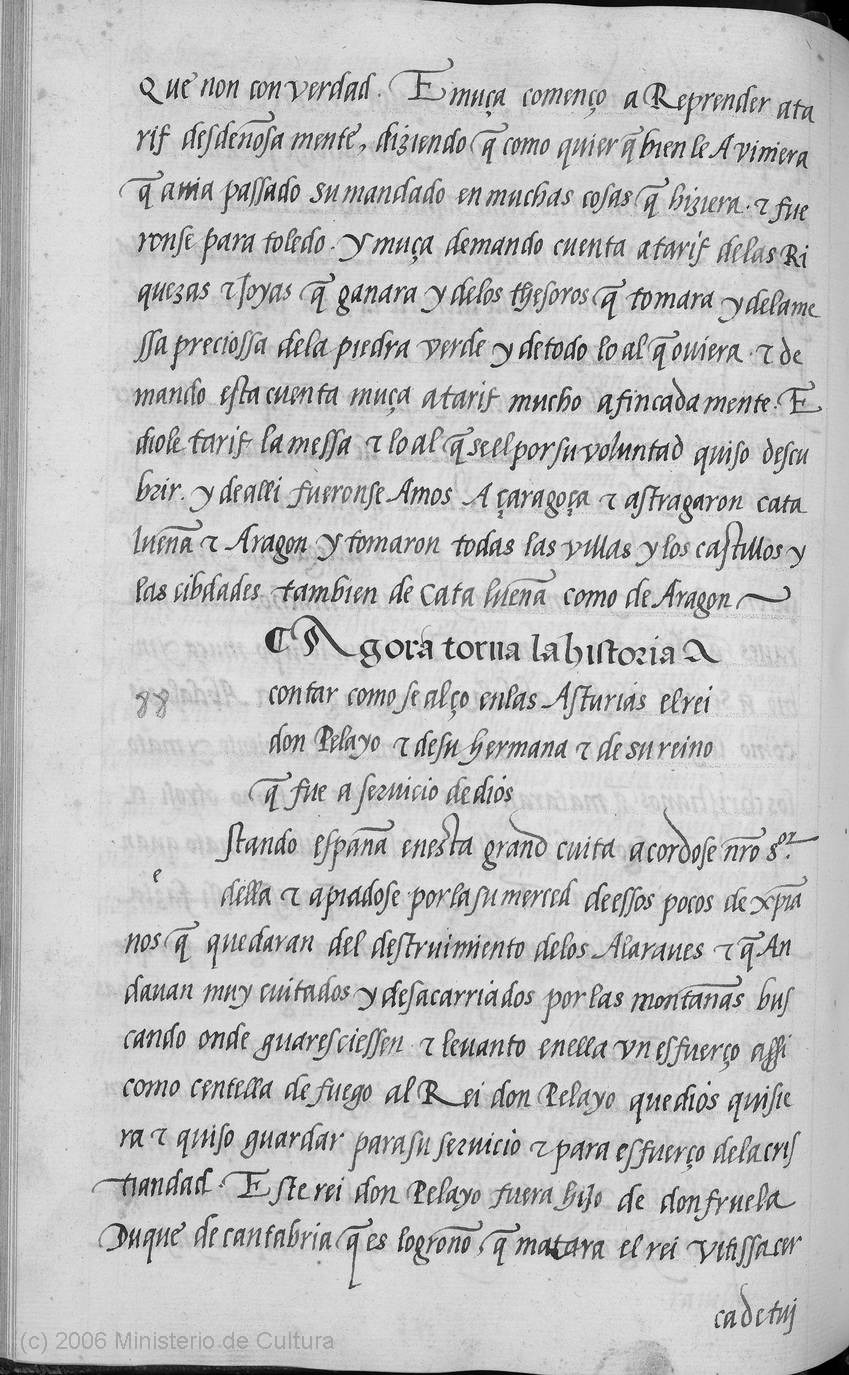 Que non con verdad. E muça començo a Reprender ata
rif desdeñosa mente, diziendo q̃ como quier q̃ bien le A viniera
q̃ auia passado su mandado en muchas cosas q̃ hiziera. τ fue
ronse para toledo. y muça demando cuenta a tarif delas Ri
quezas τ Joyas q̃ ganara y delos thesoros q̃ tomara y dela me
ssa preciossa dela piedra verde y de todo lo al q̃ ouiera. τ de
mando esta cuenta muça a tarif mucho afincada mente. E
diole tarif la messa τ lo al q̃ se el por su voluntad quiso descu
brir. y de alli fueronse Amos A çaragoça τ astragaron cata
lueña τ Aragon y tomaron todas las villas y los castillos y
las cibdades tambien de Cata lueña como de Aragon
¶ Agora torna la historia A
contar como se alço en las Asturias el rei
88
don Pelayo τ de su hermana τ de su reino
q̃ fue a seruicio de dios
stando españa en esta grand cuita acordose nr̃o s.or
e
della τ apiadose por la su merced de essos pocos de xp̃ia
nos q̃ quedaran del destruimiento delos Alaraues τ q̃ An
dauan muy cuitados y desacarriados por las montañas bus
cando onde guaresciessen τ leuanto en ella vn esfuerço assi
como centella de fuego al Rei don Pelayo que dios quisie
ra τ quiso guardar para su seruicio τ para esfuerço dela cris
tiandad. Este rei don Pelayo fuera hijo de don fruela
Duque de cantabria q̃ es logroño, q̃ matara el rei vitissa cer
ca de tuj
(c) 2006 Ministerio de Cultura